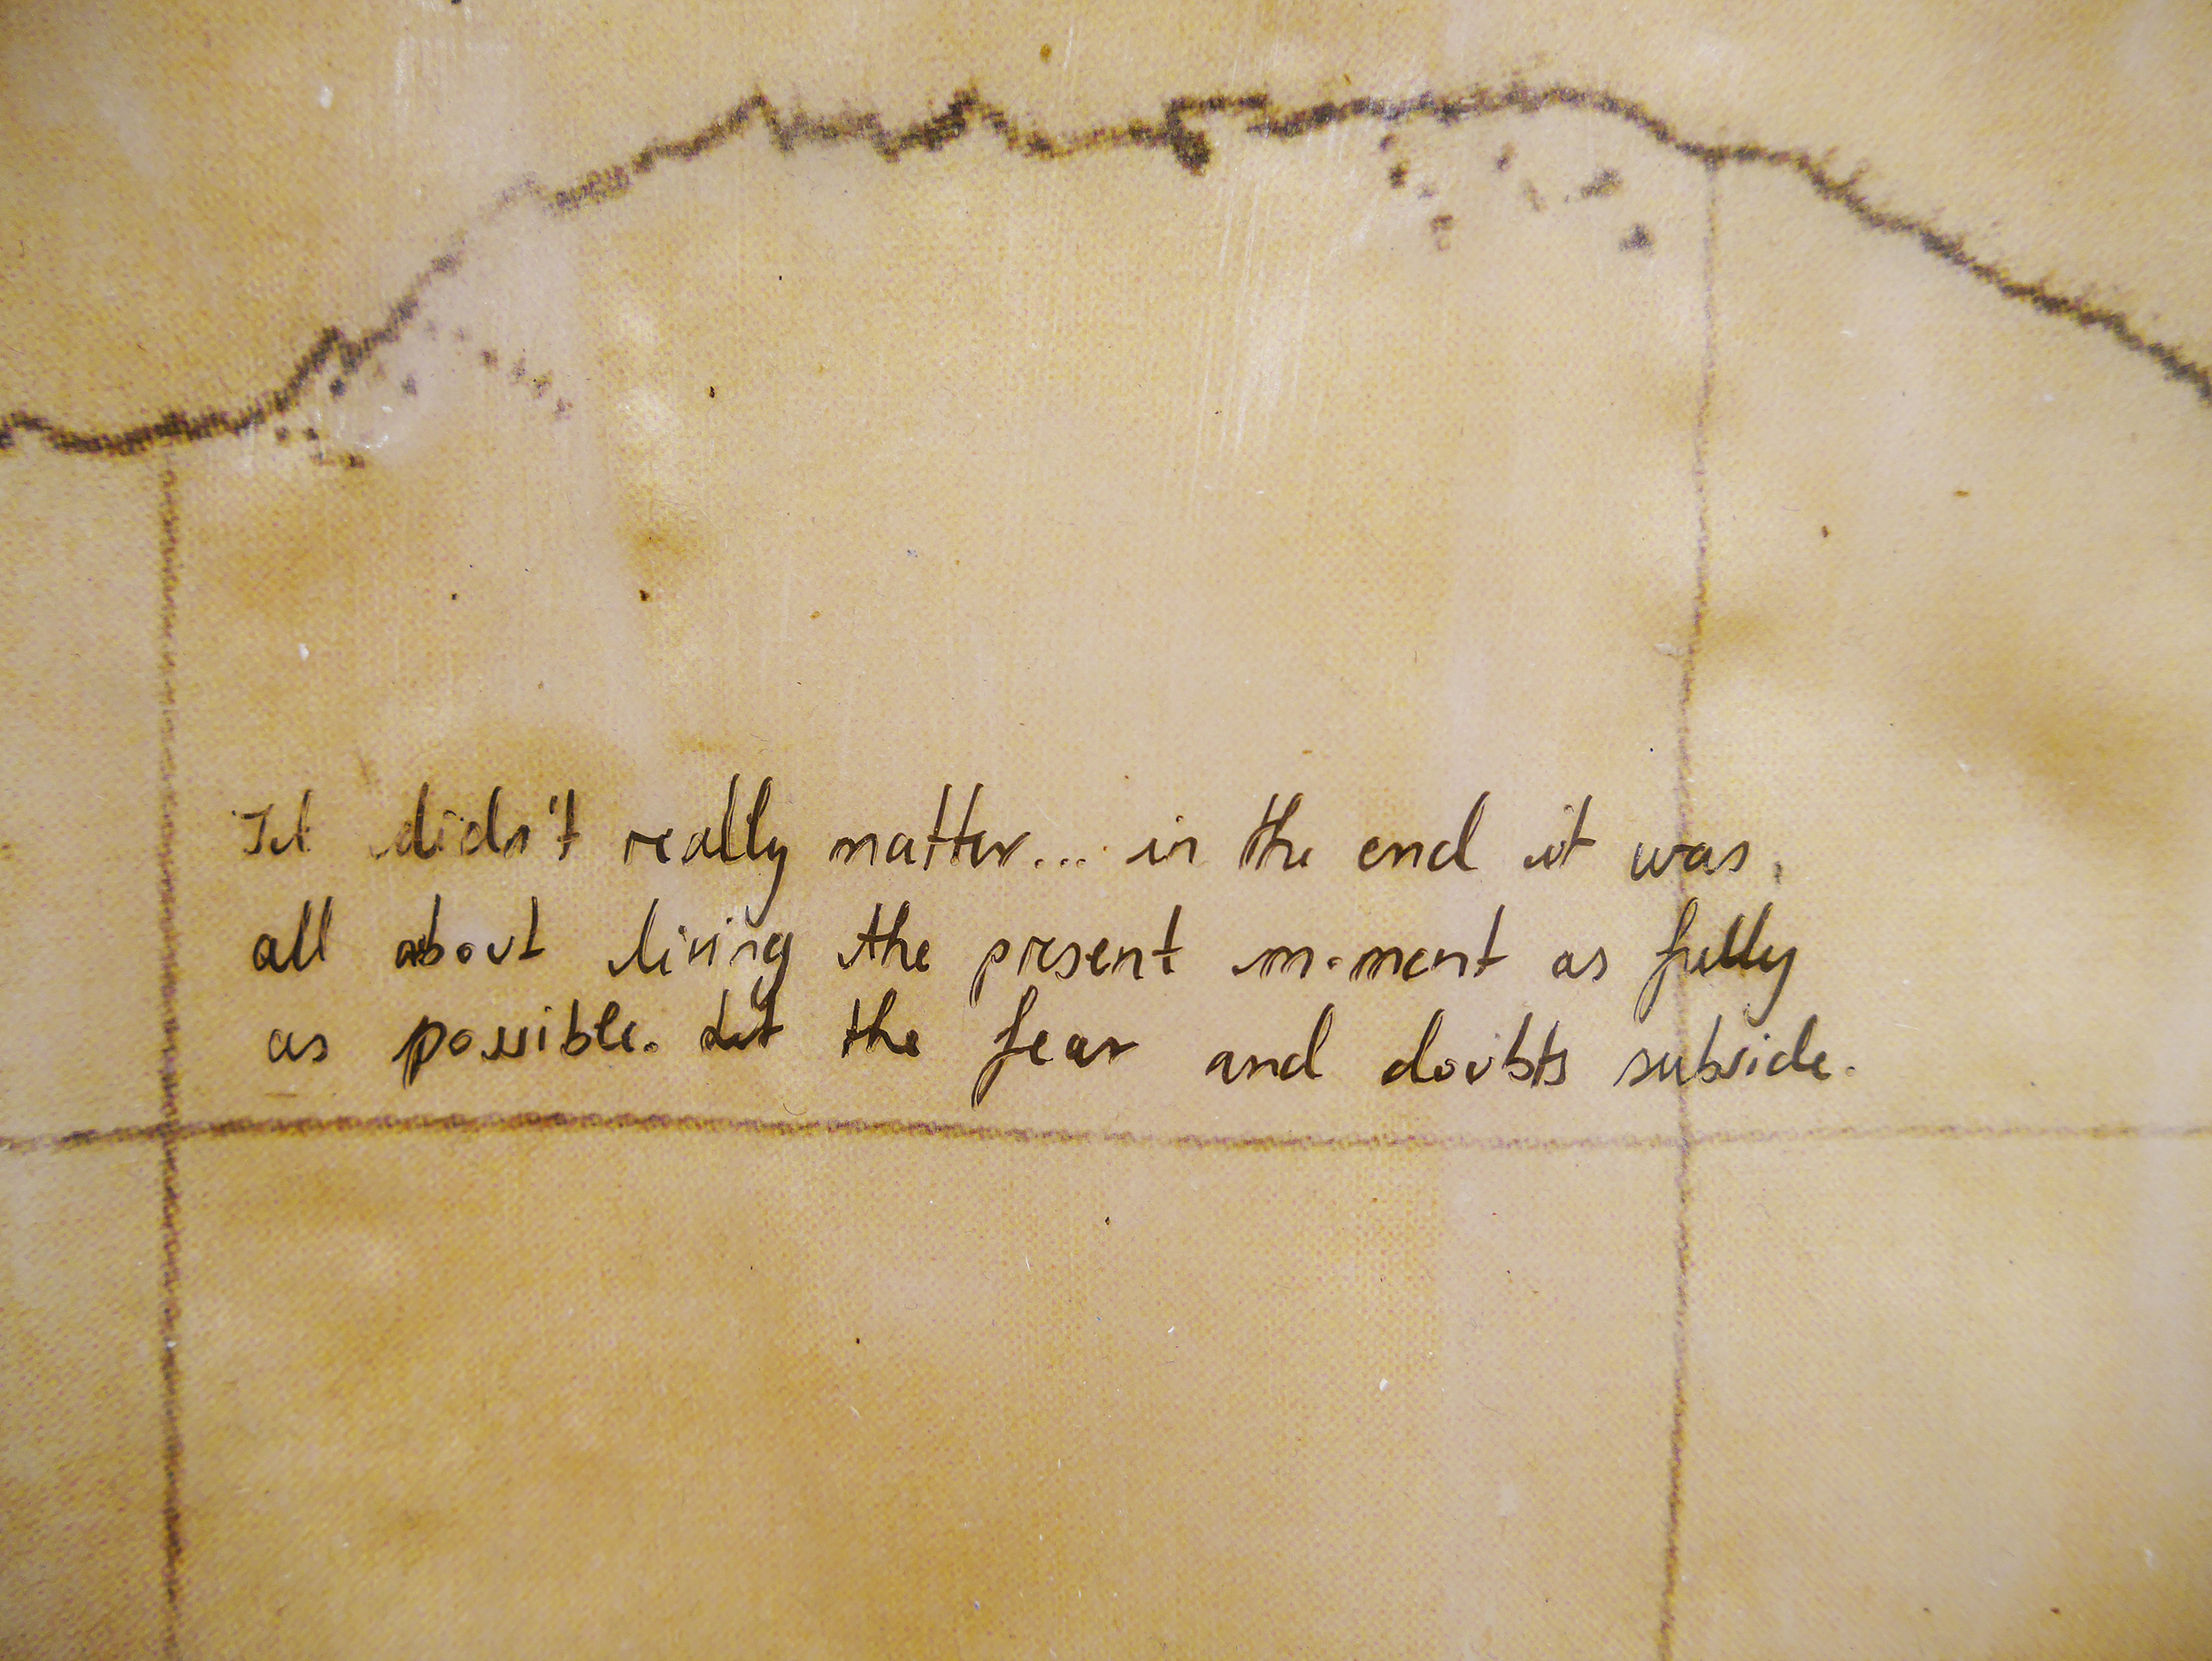 It didn't really matter... in the end it was
all about living the present moment as fully
as possible. Let the fear and doubts subside.